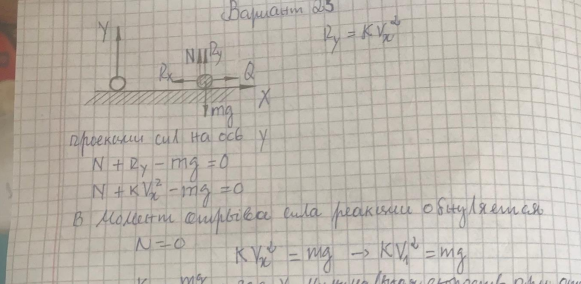 Вариант 23
R_y = KV_x²
Y
N R_y
R_x Q
X
mg
Проекции сил на ось Y
N + R_y − mg = 0
N + KV_x² − mg = 0
В момент отрыва сила реакции обнуляется
N = 0
KV_x² = mg → KV_1² = mg
mg